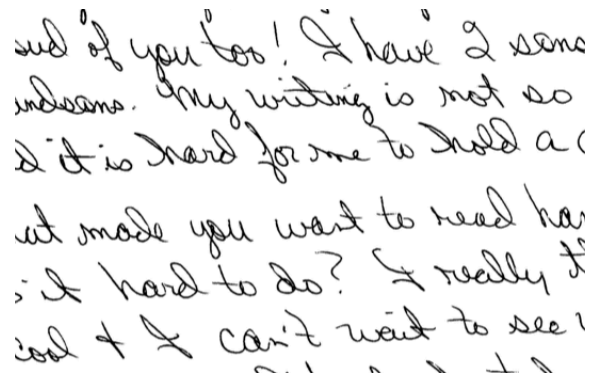 of you too! I have 2 sons
My writing is not so
it is hard for me to hold a
made you want to read
it hard to do? I really
cool & I can't wait to see